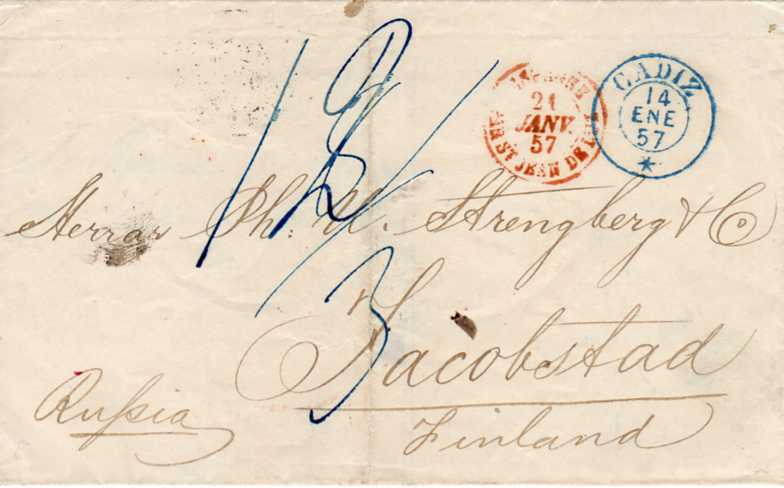 CADIZ
14
ENE
57
ESPAGNE
21
JANV.
57
ST JEAN DE
Herrar Ph: U. Strengberg & Co
Jacobstad
Rußia
Finland
3